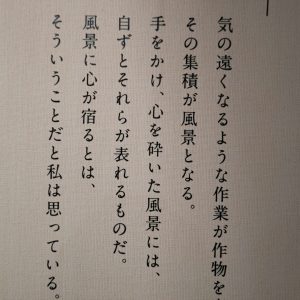 気の遠くなるような作業が作物を
その集積が風景となる。
手をかけ、心を砕いた風景には、
自ずとそれらが表れるものだ。
風景に心が宿るとは、
そういうことだと私は思っている。